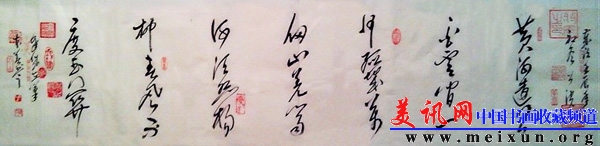 黄河遠上
白雲间一
片孤城萬
仞山羌笛
何須怨楊
柳春風不
度玉门關
美讯网 中国书画收藏频道
www.meixun.org